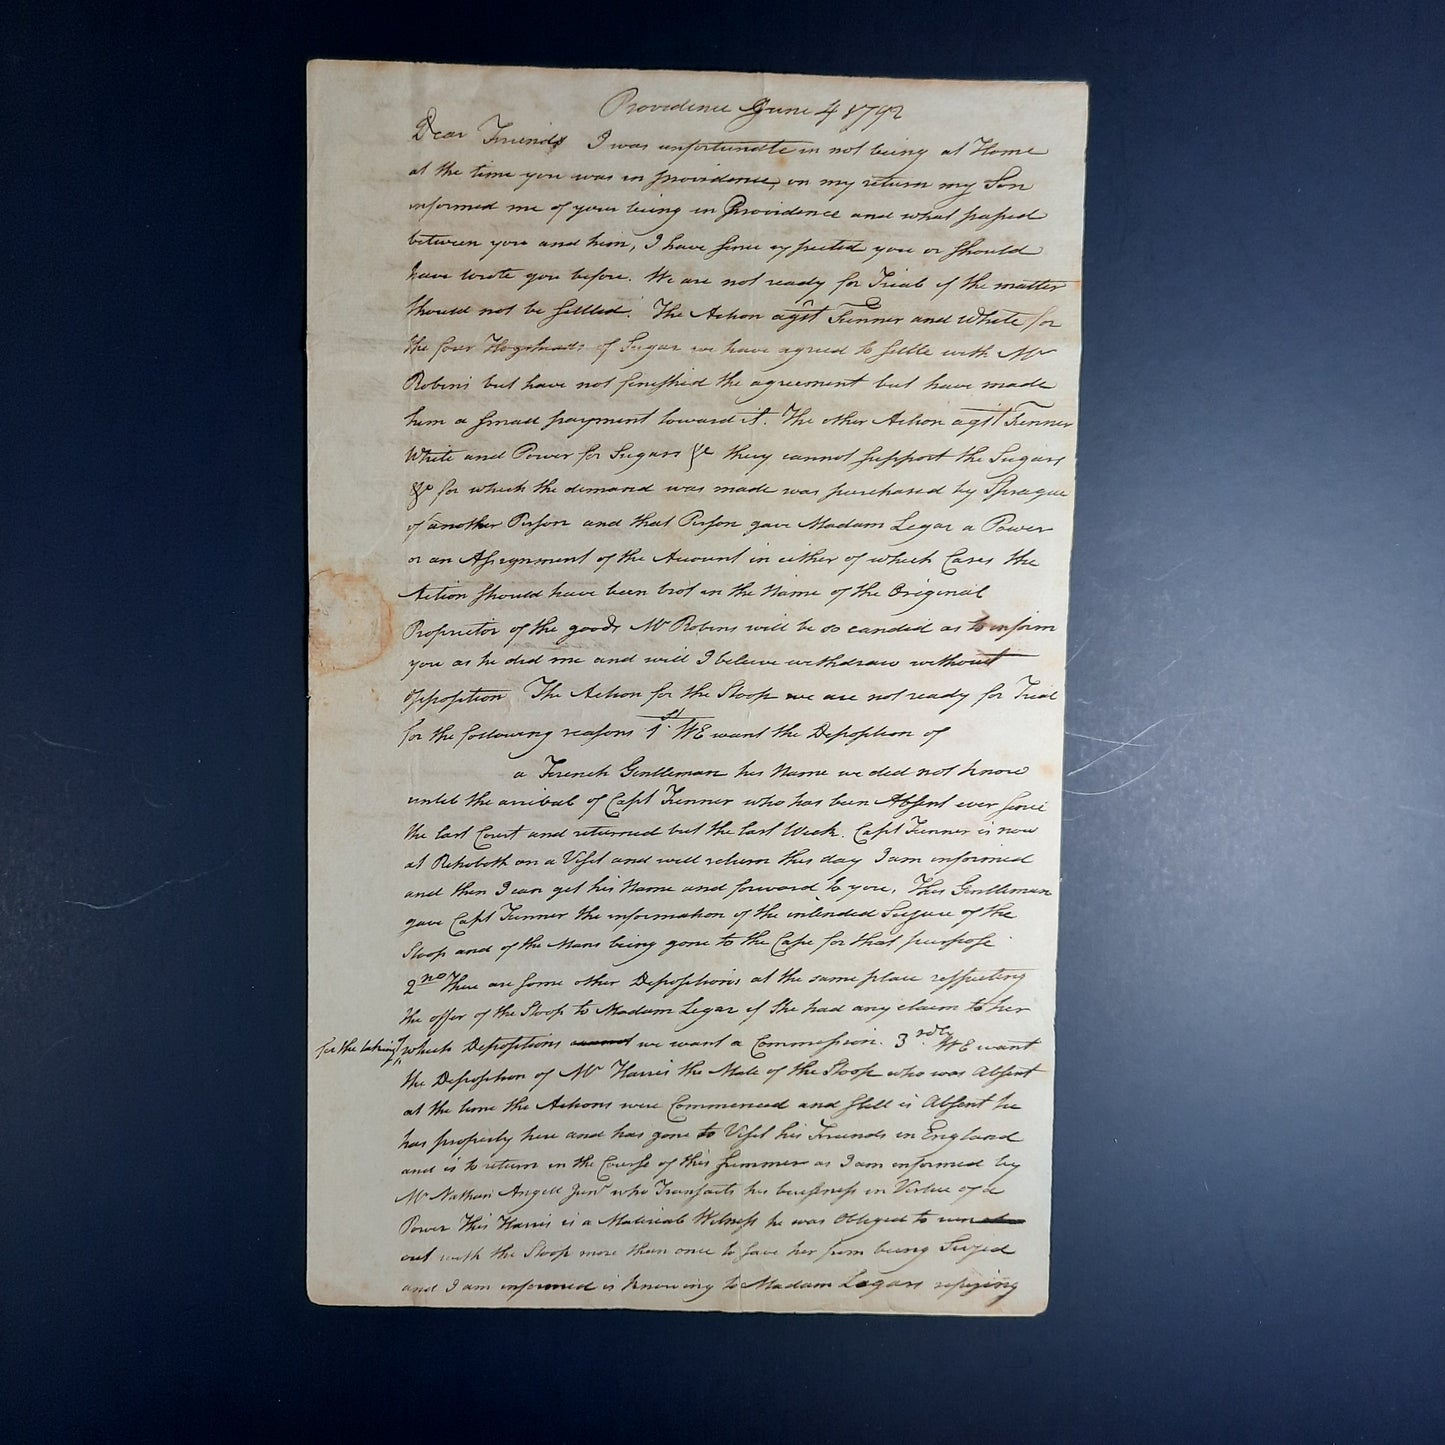 Providence June 4 1792
Dear Friends I was unfortunate in not being at Home
at the time you was in providence, on my return my Son
informed me of your being in Providence and what passed
between you and him, I have since expected you or should
have wrote you before. We are not ready for Trial if the matter
should not be settled. The Action agst Tenner and White for
the four Hogsheads of Sugar we have agreed to settle with Mr
Robins but have not finished the agreement but have made
him a small payment toward it. The other Action agst Tenner
White and Power for Sugars &c they cannot support the Sugars
&c for which the demand was made was purchased by Sprague
of another Person and that Person gave Madam Legar a Power
or an Assignment of the Account in either of which Cases the
Action should have been brot in the Name of the Original
Proprietor of the goods Mr Robins will be so candid as to inform
you as he did me and will I believe withdraw without
opposition The Action for the Sloop we are not ready for Trial
for the following reasons 1st WE want the Deposition of
a French Gentleman his Name we did not know
until the arival of Capt Tenner who has been Absent ever since
the last Court and returned but the last Week. Capt Tenner is now
at Rehoboth on a Visit and will return this day I am informed
and then I can get his Name and forward to you, This Gentleman
gave Capt Tenner the information of the intended Seizure of the
Sloop and of the Mans being gone to the Cape for that purpose
2nd There are some other Depositions at the same place respecting
the offer of the Sloop to Madam Legar if she had any claim to her
for the taking which Depositions we want a Commission. 3rdly WE want
the Deposition of Mr Harris the Mate of the Sloop who was Absent
at the time the Actions were Commenced and still is Absent he
has property here and has gone to Visit his Friends in England
and is to return in the Course of this Summer as I am informed by
Mr Nathan Angell Junr who Transacts his business in Virtue of a
Power This Harris is a Material Witness he was Obliged to run
out with the Sloop more than once to save her from being Seized
and I am informed is knowing to Madam Legars